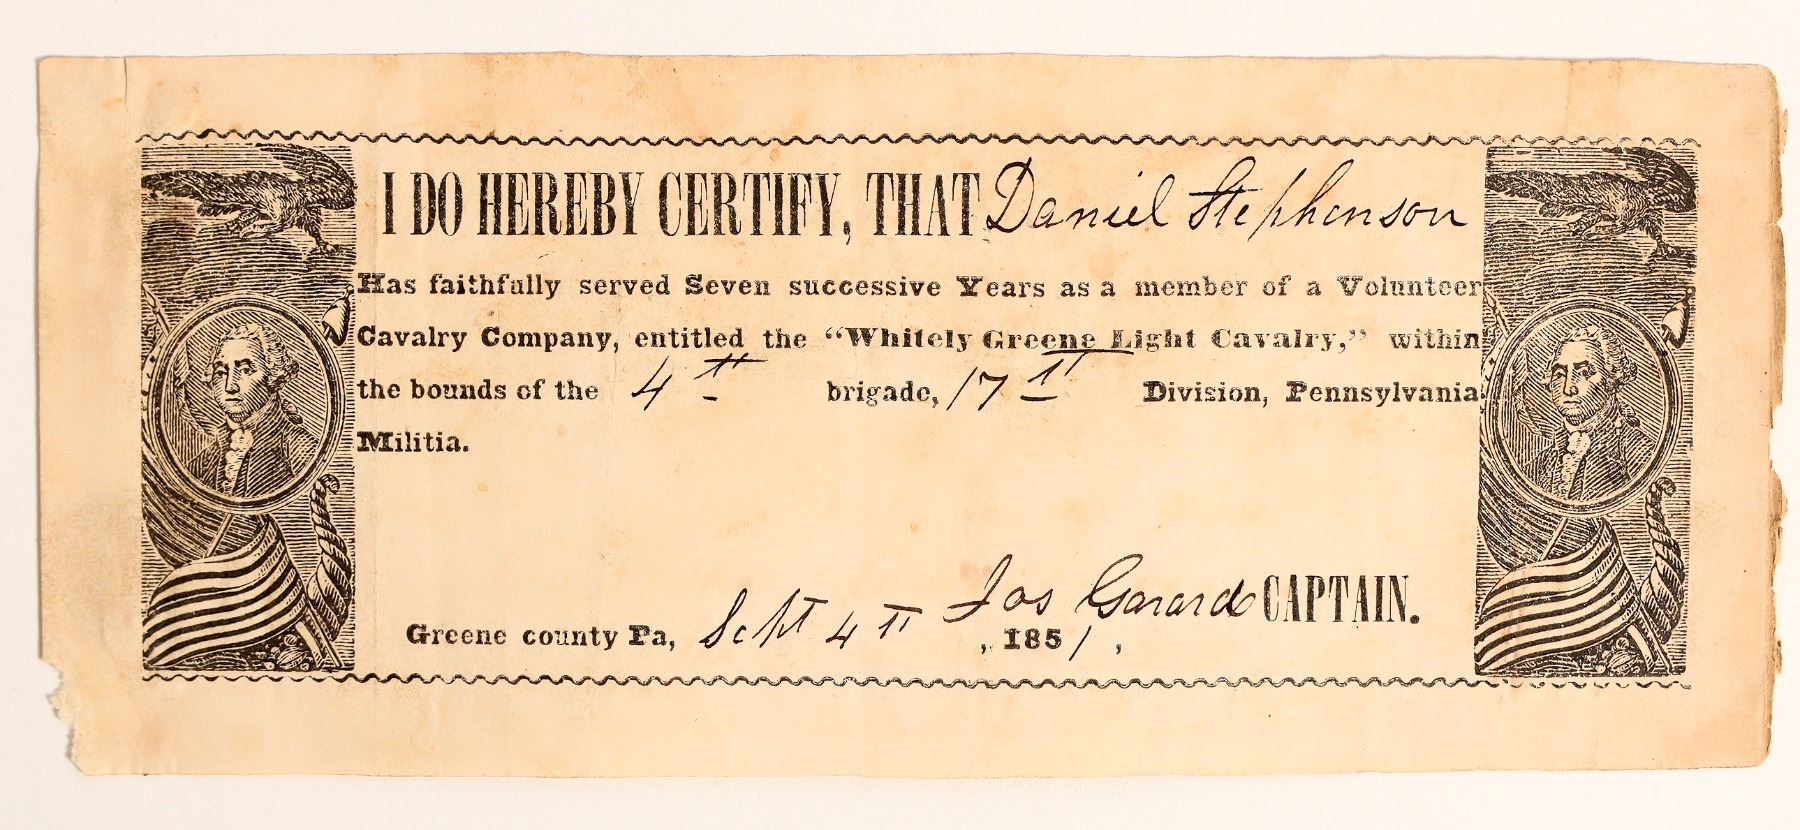 I DO HEREBY CERTIFY, THAT Daniel Stephenson
Has faithfully served Seven successive Years as a member of a Volunteer
Cavalry Company, entitled the "Whitely Greene Light Cavalry," within
the bounds of the 4th brigade, 17th Division, Pennsylvania
Militia.
Jos Garard CAPTAIN.
Greene county Pa, Sept 4th, 1851,